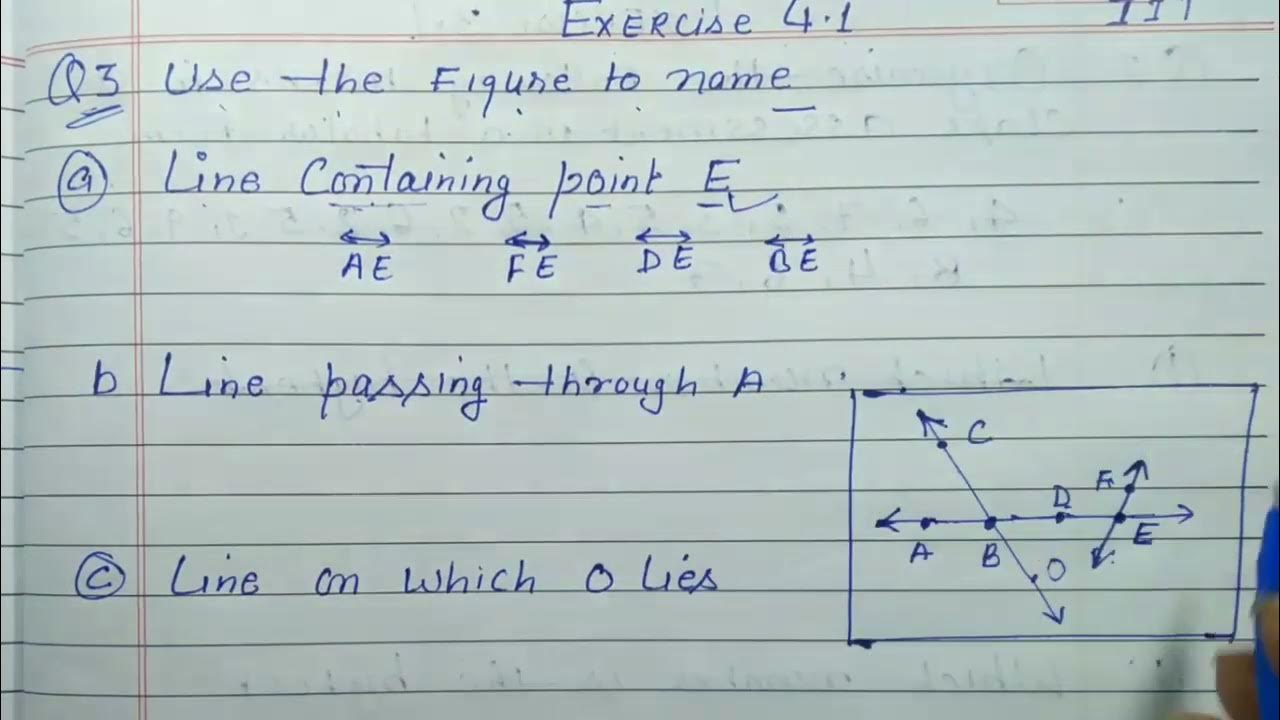 Exercise 4.1
Q3 Use the Figure to name
(a) Line Containing point E
AE FE DE BE
b Line passing through A
C
F
D
A B E
O
(c) Line on which O lies